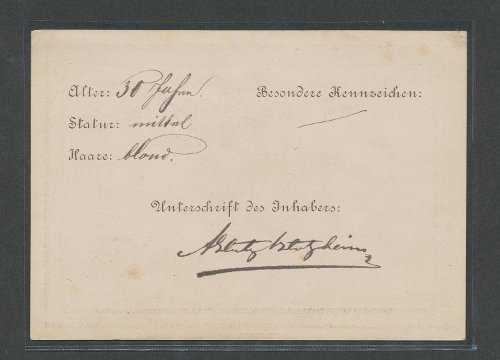 Alter: 30 Jahre.
Besondere Kennzeichen:
Statur: mittel
Haare: blond.
Unterschrift des Inhabers: